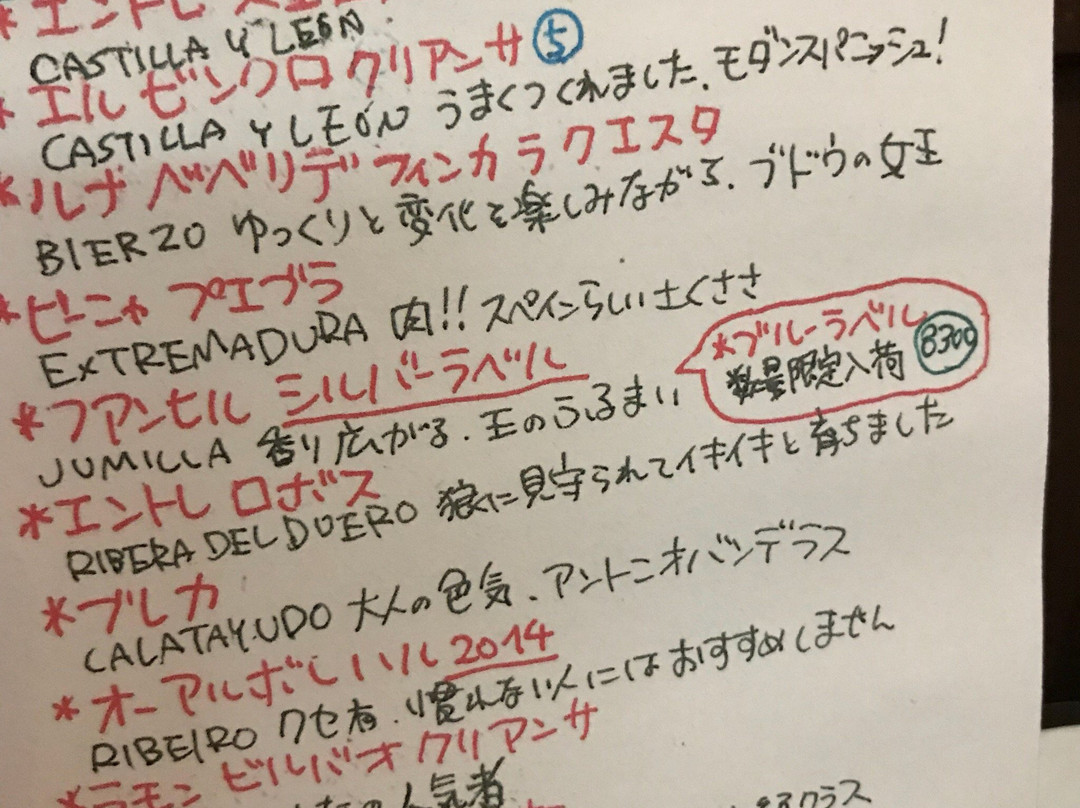 *エントレ
CASTILLA Y LEÓN
*エル ビンクロ クリアンサ ⑤
CASTILLA Y LEÓN うまくつくれました、モダンスパニッシュ!
*ルナ ベベリデ フィンカ ラ クエスタ
BIERZO ゆっくりと変化を楽しみながら、ブドウの女王
*ビーニャ プエブラ
EXTREMADURA 肉!! スペインらしい土くささ
*フアンヒル シルバーラベル
*ブルーラベル
数量限定入荷 8300
JUMILLA 香り広がる、王のふるまい
*エントレ ロボス
RIBERA DEL DUERO 狼に見守られてイキイキと育ちました
*ブレカ
CALATAYUDO 大人の色気、アントニオバンデラス
*オー アルボレハル 2014
RIBEIRO クセ有、慣れない人にはおすすめしません
*ラモン ビルバオ クリアンサ
の人気者
クラス